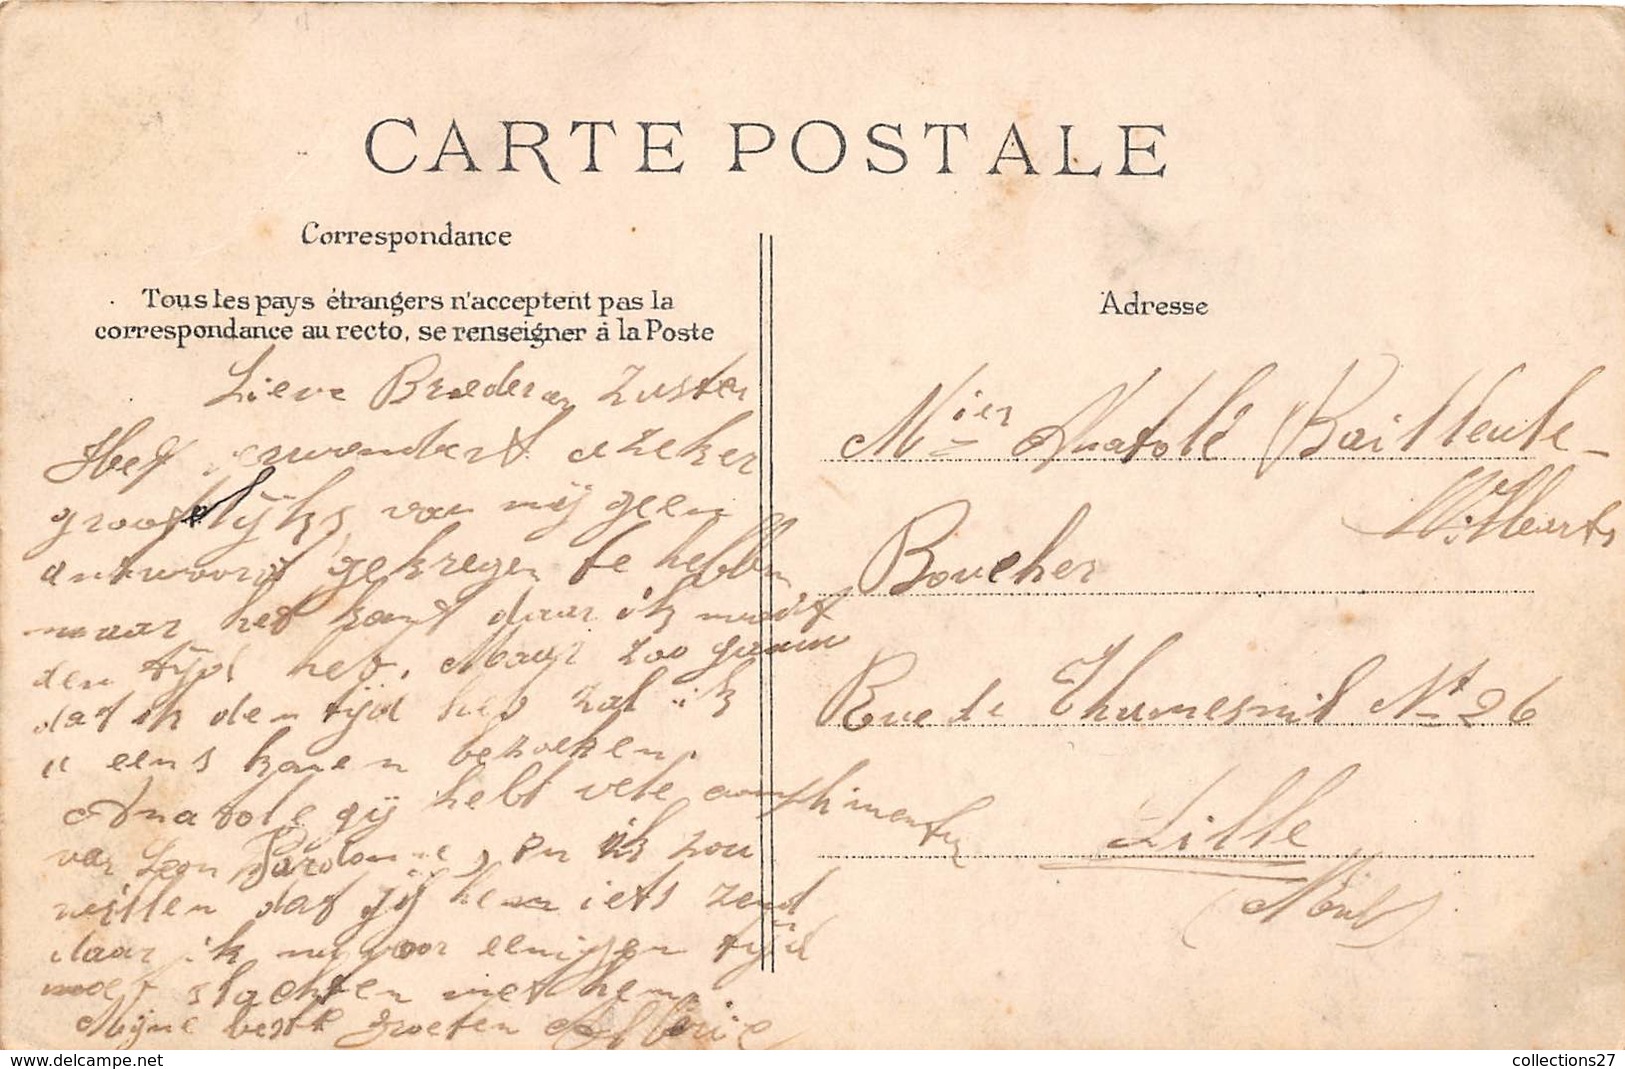 CARTE POSTALE
Correspondance
Tous les pays étrangers n'acceptent pas la
correspondance au recto, se renseigner à la Poste
Adresse
Lieve Broeder en Zuster
Het verwondert u zeker
grootelijks van mij geen
antwoord gekregen te hebben
maar het komt daar ik nooit
den tijd heb. Maar zoo gauw
dat ik den tijd heb zal ik
u eens komen bezoeken.
Anatole gij hebt vele complimenten
van Leon en ik zou
willen dat gij hem iets zend
daar ik nu voor eenigen tijd
moet slachten met hem.
Mijne beste groeten
Mier Anatole Bailleule
Boucher
Rue de Thumesnil No 26
Lille
(Nord)
collections27